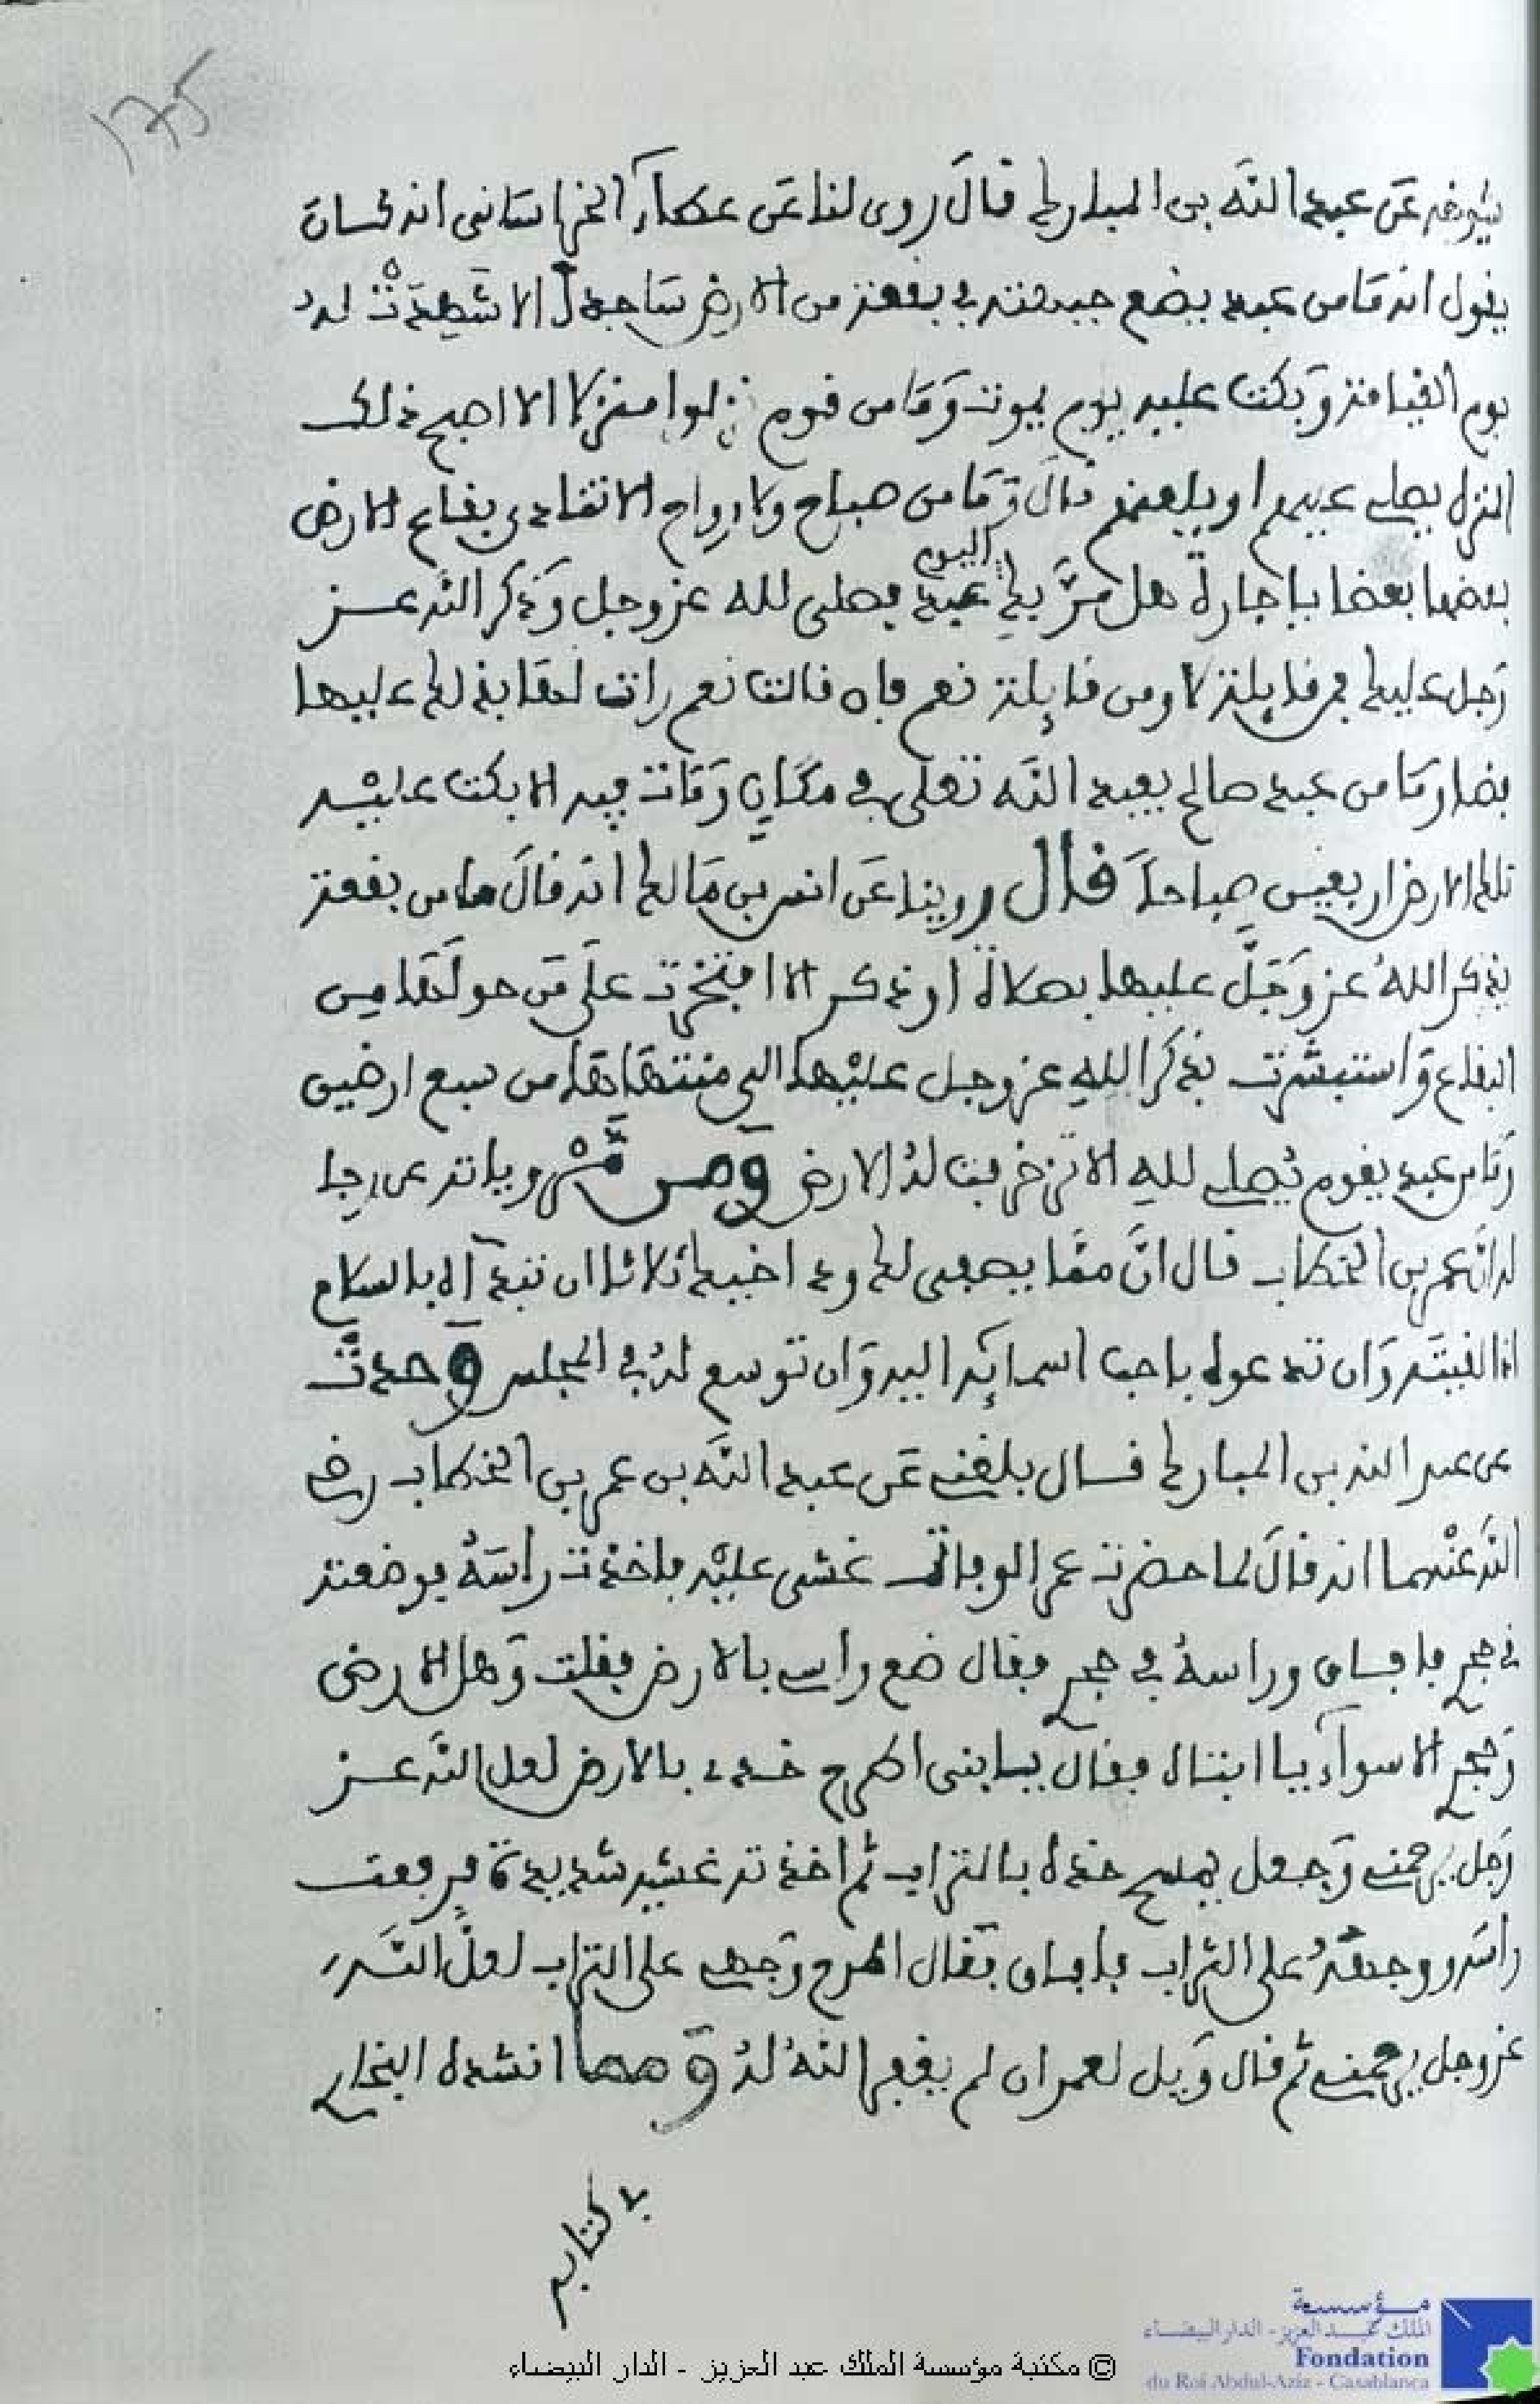 175
شيوخه عن عبد الله بن المبارك قال روى لنا عن عطاء الخراساني انه كان
يقول انه ما من عبد يضع جبهته في بقعة من الارض ساجدا الا شهدت له
يوم القيامة وبكت عليه يوم يموت وما من قوم نزلوا منزلا الا اصبح ذلك
المنزل يصلي عليهم او يلعنهم قال وما من صباح ولا رواح الا تنادي بقاع الارض
بعضها بعضا يا جارة هل مر بك اليوم عبد فصلى لله عز وجل وذكر الله عز
وجل عليك فمن قايلة لا ومن قايلة نعم فاذا قالت نعم رات لها بذلك عليها
فضلا وما من عبد صالح يعبد الله تعلى في مكان ومات فيه الا بكت عليه
تلك الارض اربعين صباحا قال روينا عن انس بن مالك انه قال ما من بقعة
يذكر الله عز وجل عليها بصلاة او ذكر الا افتخرت على من حولها من
البقاع واستبشرت بذكر الله عز وجل عليها الى منتهاها من سبع ارضين
وما من عبد يقوم يصلي لله الا تزخرفت له الارض ومن مروياته عن رجا
له ان عمر بن الخطاب قال ان مما يصفى لك ود اخيك ثلاثا ان تبدأه بالسلام
اذا لقيته وان تدعوه باحب اسمائه اليه وان توسع له في المجلس وحدث
عن عبد الله بن المبارك قال بلغني عن عبد الله بن عمر بن الخطاب رضي
الله عنهما انه قال لما حضرت عمر الوفاة غشي عليه فاخذت راسه فوضعته
في حجري فافاق وراسه في حجري فقال ضع راسي بالارض فقلت وهل الارض
وحجري الا سواء يا ابتاه فقال يا بني اطرح خدي بالارض لعل الله عز
وجل يرحمني وجعل يمسح خده بالتراب ثم اخذته غشية شديدة فرفعت
راسه ووجهه على التراب فافاق فقال اطرح وجهي على التراب لعل الله
عز وجل يرحمني ثم قال ويل لعمر ان لم يغفر الله له ومما انشده البخاري
في كتابه
مؤسسة
الملك عبد العزيز - الدار البيضاء
Fondation
du Roi Abdul-Aziz - Casablanca
© مكتبة مؤسسة الملك عبد العزيز - الدار البيضاء